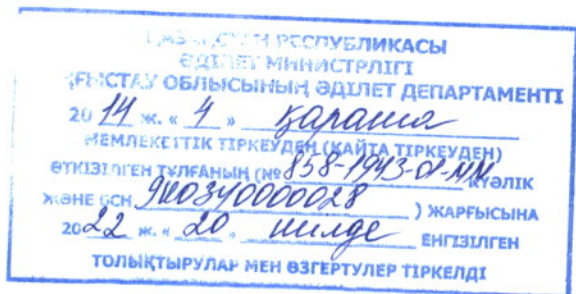 ҚАЗАҚСТАН РЕСПУБЛИКАСЫ
ӘДІЛЕТ МИНИСТРЛІГІ
ҒЫСТАУ ОБЛЫСЫНЫҢ ӘДІЛЕТ ДЕПАРТАМЕНТІ
20 14 ж. « 4 » қараша
МЕМЛЕКЕТТІК ТІРКЕУДЕН (ҚАЙТА ТІРКЕУДЕН)
ӨТКІЗІЛГЕН ТҰЛҒАНЫҢ (№ 858-1943-01-ММ КУӘЛІК
ЖӘНЕ БСН 940340000028 ) ЖАРҒЫСЫНА
2022 ж. « 20 » шілде ЕНГІЗІЛГЕН
ТОЛЫҚТЫРУЛАР МЕН ӨЗГЕРТУЛЕР ТІРКЕЛДІ